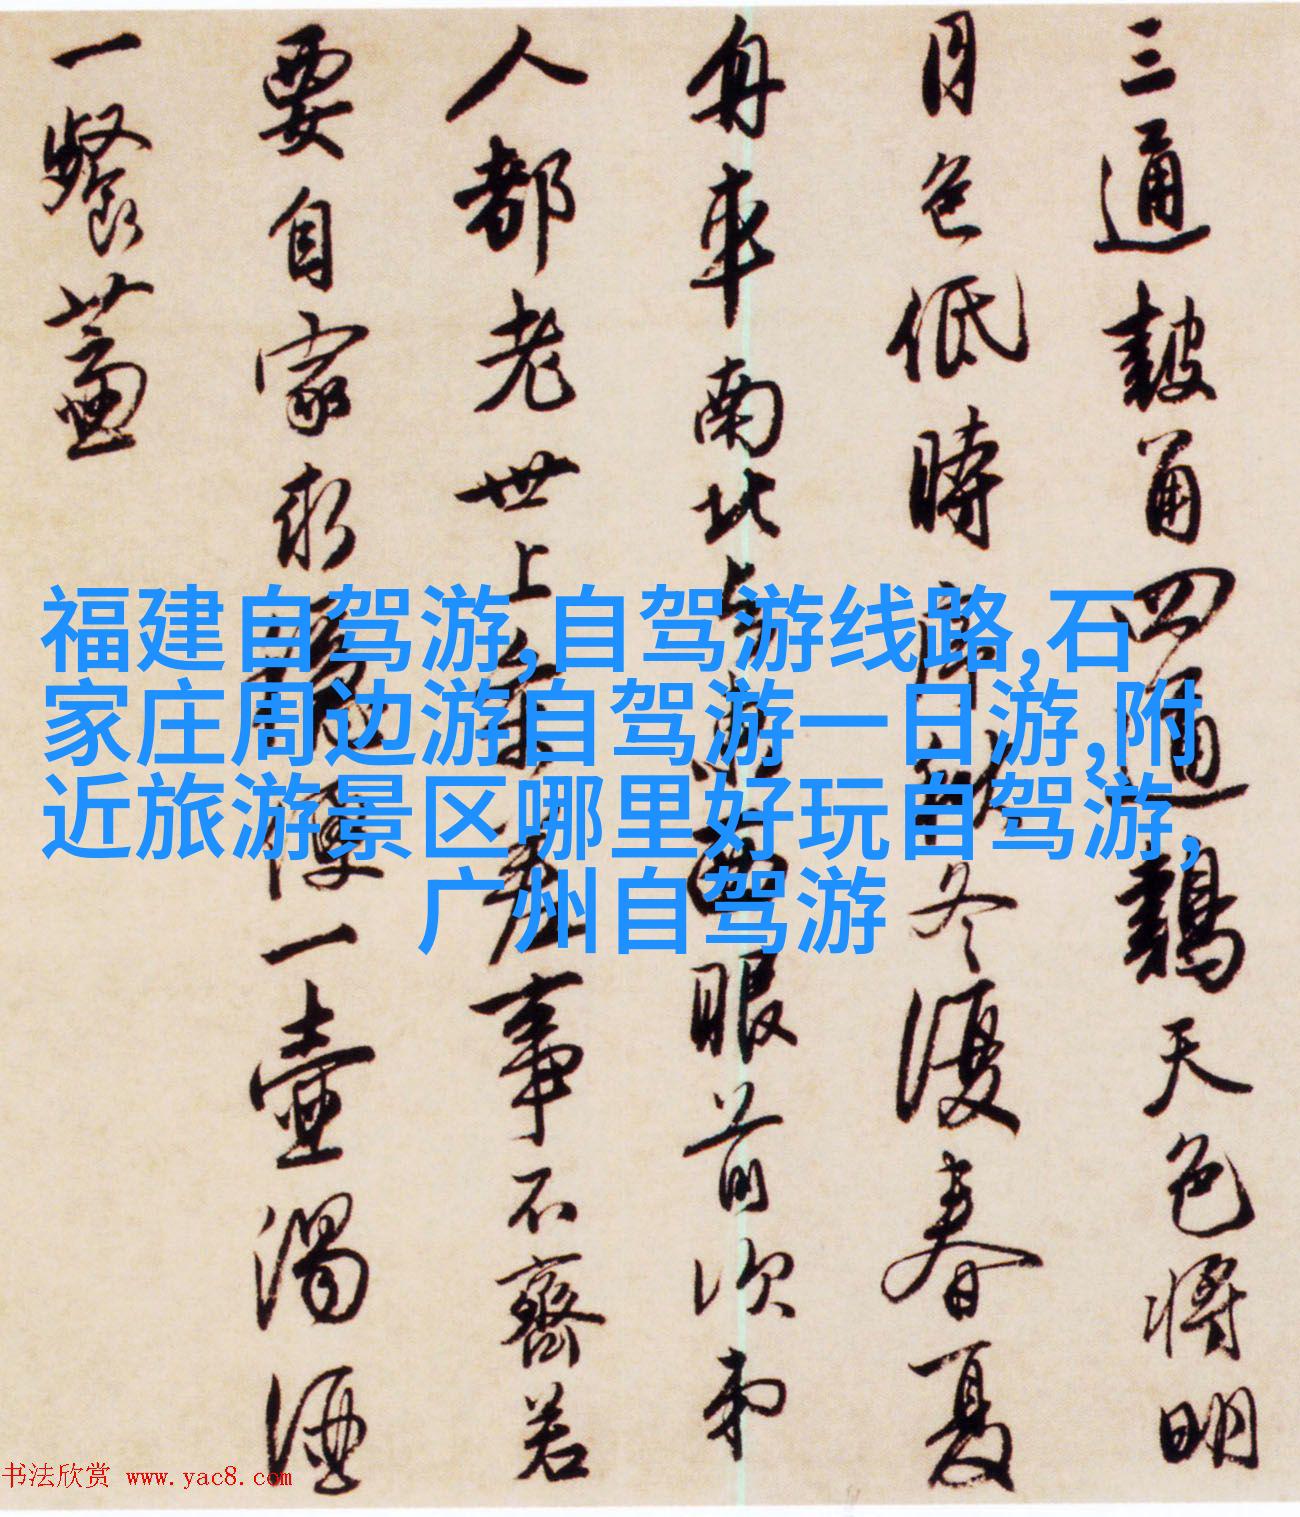 三通鼓角四通鷄天色將明
月色低時序秋冬復春夏
舟車南北與東西眼前次第
人都老世上參差事不齊若
要自家求穩便一壺濁酒
一餐虀
福建自驾游,自驾游线路,石
家庄周边游自驾游一日游,附
近旅游景区哪里好玩自驾游,
广州自驾游
书法欣赏 www.yac8.com